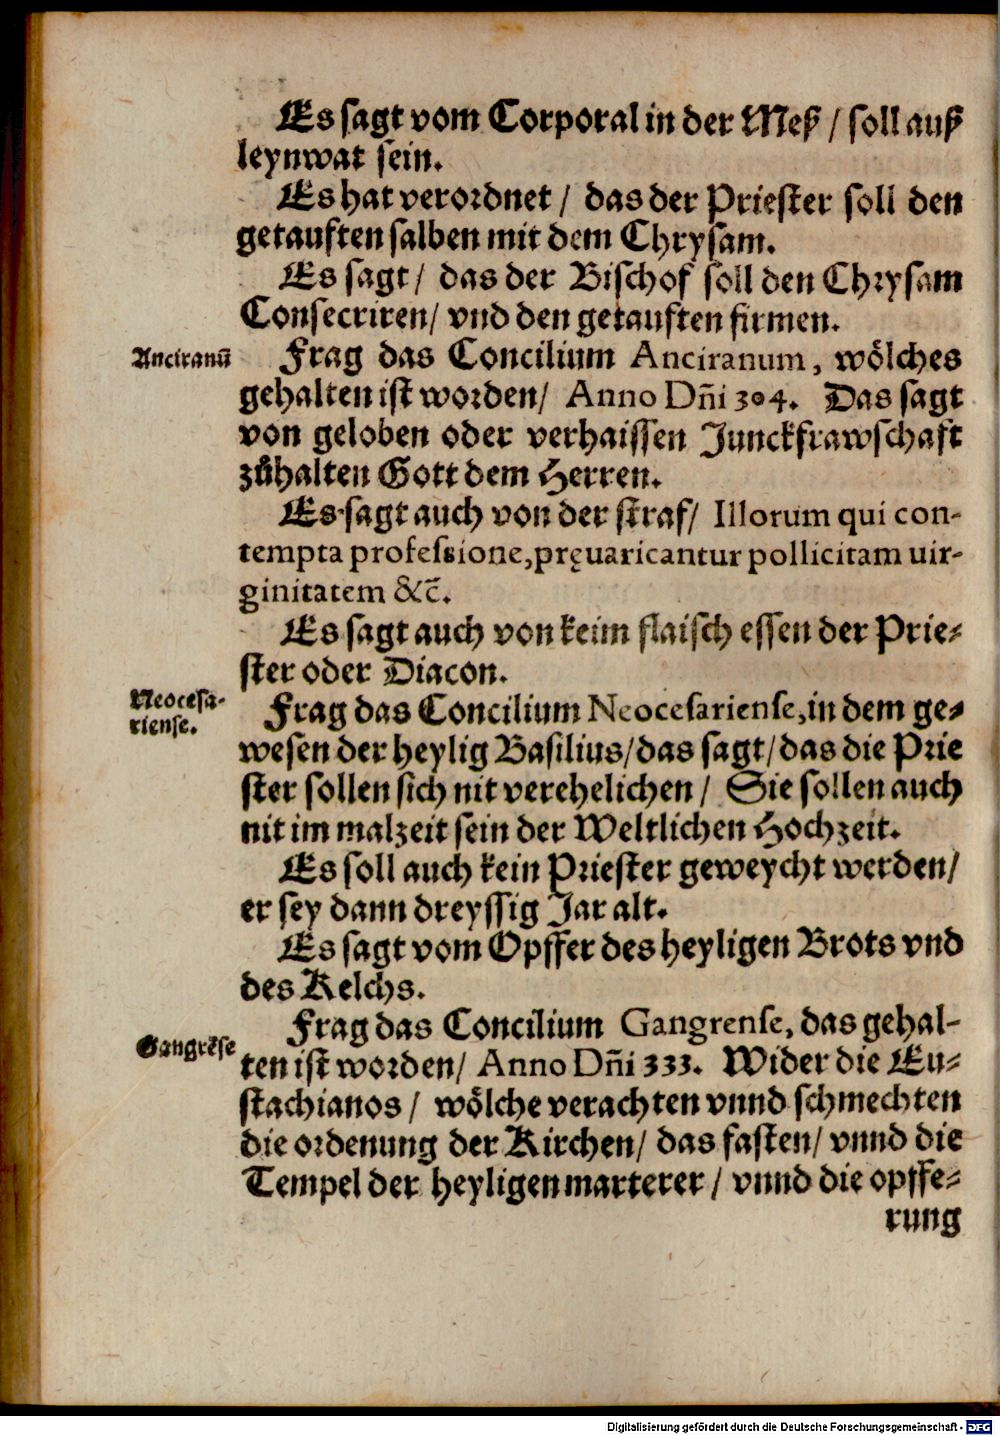 Es sagt vom Corporal in der Meß / soll auß
leynwat sein.
Es hat verordnet / das der Priester soll den
getauften salben mit dem Chrysam.
Es sagt / das der Bischof soll den Chrysam
Consecriren / vnd den getauften firmen.
Anciranū
Frag das Concilium Anciranum, wölches
gehalten ist worden / Anno Dñi 304. Das sagt
von geloben oder verhaissen Junckfrawschaft
zůhalten Gott dem Herren.
Es sagt auch von der straf / Illorum qui con-
tempta professione, pręuaricantur pollicitam uir-
ginitatem &c̄.
Es sagt auch von keim flaisch essen der Prie-
ster oder Diacon.
Neocesa-
riense.
Frag das Concilium Neocesariense, in dem ge-
wesen der heylig Basilius / das sagt / das die Prie
ster sollen sich nit verehelichen / Sie sollen auch
nit im malzeit sein der Weltlichen Hochzeit.
Es soll auch kein Priester geweycht werden /
er sey dann dreyssig Jar alt.
Es sagt vom Opffer des heyligen Brots vnd
des Kelchs.
Gangrēse
Frag das Concilium Gangrense, das gehal-
ten ist worden / Anno Dñi 333. Wider die Eu-
stachianos / wölche verachten vnnd schmechten
die ordenung der Kirchen / das fasten / vnnd die
Tempel der heyligen marterer / vnnd die opffe-
rung
Digitalisierung gefördert durch die Deutsche Forschungsgemeinschaft - DFG